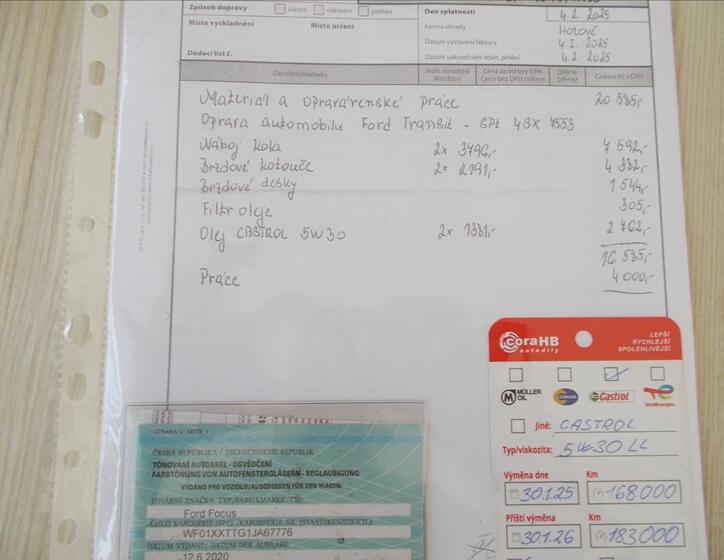 Způsob dopravy vlastní nákladní poštou
Místo vyskladnění Místo určení
Dodací list č.
Den splatnosti 4.2.2025
Forma úhrady Hotově
Datum vystavení faktury 4.2.2025
Datum uskutečnění zdan. plnění 4.2.2025
Označení dodávky Jedn. množství Cena za MJ bez DPH DPH % Celkem Kč z DPH
Množství Cena bez DPH celkem DPH Kč
Materiál a opravárenské práce 20 535,-
Oprava automobilu Ford Transit - SPZ 4SX 7553
Náboj kola 2x 3796,- 7 592,-
Brzdové kotouče 2x 2191,- 4 382,-
Brzdové desky 1 544,-
Filtr oleje 305,-
Olej CASTROL 5W30 2x 1381,- 2 762,-
16 585,-
Práce 4 000,-
coraHB
autodíly
LEPŠÍ
RYCHLEJŠÍ
SPOLEHLIVĚJŠÍ
MÜLLER OIL Castrol TotalEnergies
Jiné: CASTROL
Typ/viskozita: 5W30 LL
Výměna dne Km
30.1.25 168000
Příští výměna Km
30.1.26 183000
ČESKÁ REPUBLIKA / TSCHECHISCHE REPUBLIK
TÓNOVÁNÍ AUTOSKEL - OSVĚDČENÍ
FARBTÖNUNG VON AUTOFENSTERGLÄSERN - BEGLAUBIGUNG
VYDÁNO PRO VOZIDLO/AUSGEGEBEN FÜR DEN WAGEN:
TOVÁRNÍ ZNAČKA, TYP/FABRIKMARKE, TYP.
Ford Focus
WF01XXTTG1JA67776
DATUM VYDÁNÍ / DATUM DER AUSGABE
12.6.2020